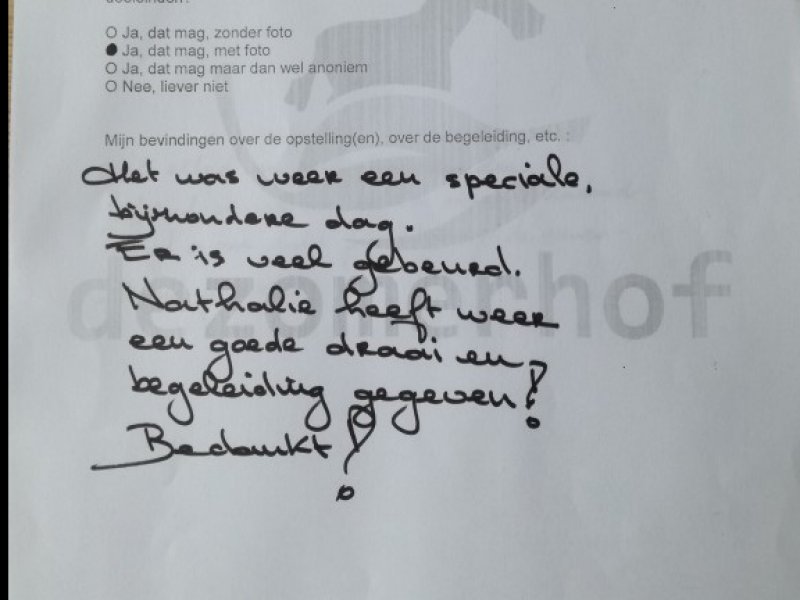 doeleinden?
O Ja, dat mag, zonder foto
● Ja, dat mag, met foto
O Ja, dat mag maar dan wel anoniem
O Nee, liever niet
Mijn bevindingen over de opstelling(en), over de begeleiding, etc. :
Het was weer een speciale,
bijzondere dag.
Er is veel gebeurd.
dezomerhof
Nathalie heeft weer
een goede draai en
begeleiding gegeven!
Bedankt!